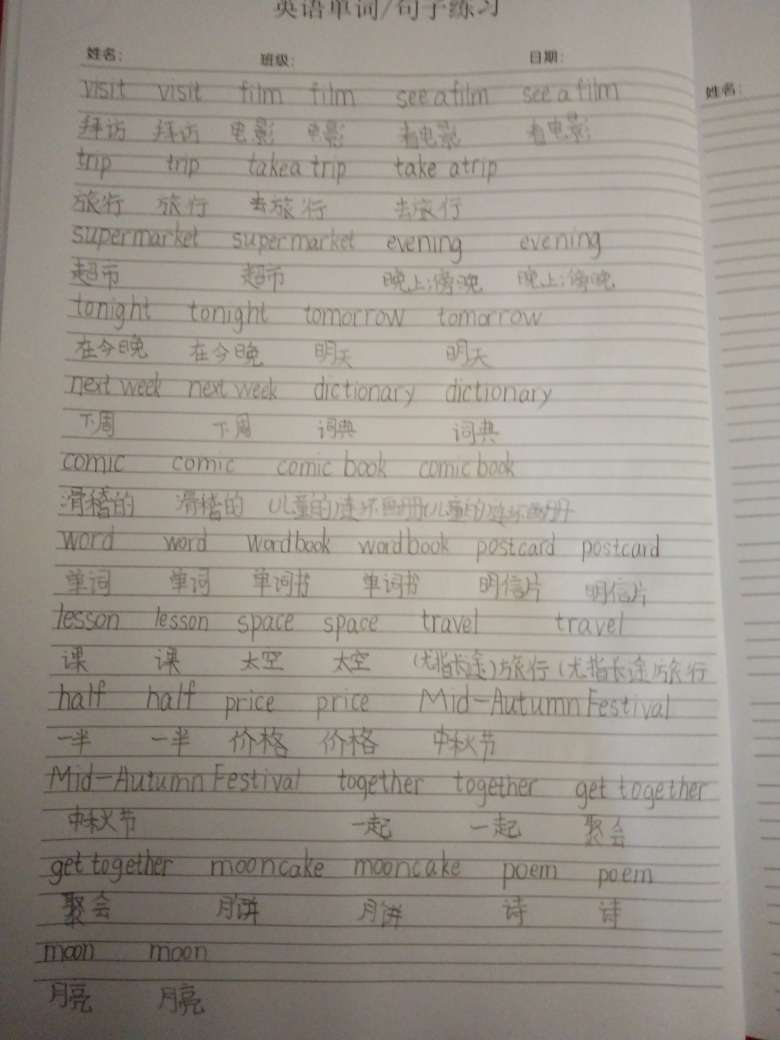 英语单词/句子练习
姓名: 班级: 日期:
visit visit film film see a film see a film
拜访 拜访 电影 电影 看电影 看电影
trip trip takea trip take atrip
旅行 旅行 去旅行 去旅行
supermarket supermarket evening evening
超市 超市 晚上;傍晚 晚上;傍晚
tonight tonight tomorrow tomorrow
在今晚 在今晚 明天 明天
next week next week dictionary dictionary
下周 下周 词典 词典
comic comic comic book comic book
滑稽的 滑稽的 儿童的连环画册 儿童的连环画册
word word wordbook wordbook postcard postcard
单词 单词 单词书 单词书 明信片 明信片
lesson lesson space space travel travel
课 课 太空 太空 (尤指长途)旅行 (尤指长途)旅行
half half price price Mid-Autumn Festival
一半 一半 价格 价格 中秋节
Mid-Autumn Festival together together get together
中秋节 一起 一起 聚会
get together mooncake mooncake poem poem
聚会 月饼 月饼 诗 诗
moon moon
月亮 月亮
姓名: